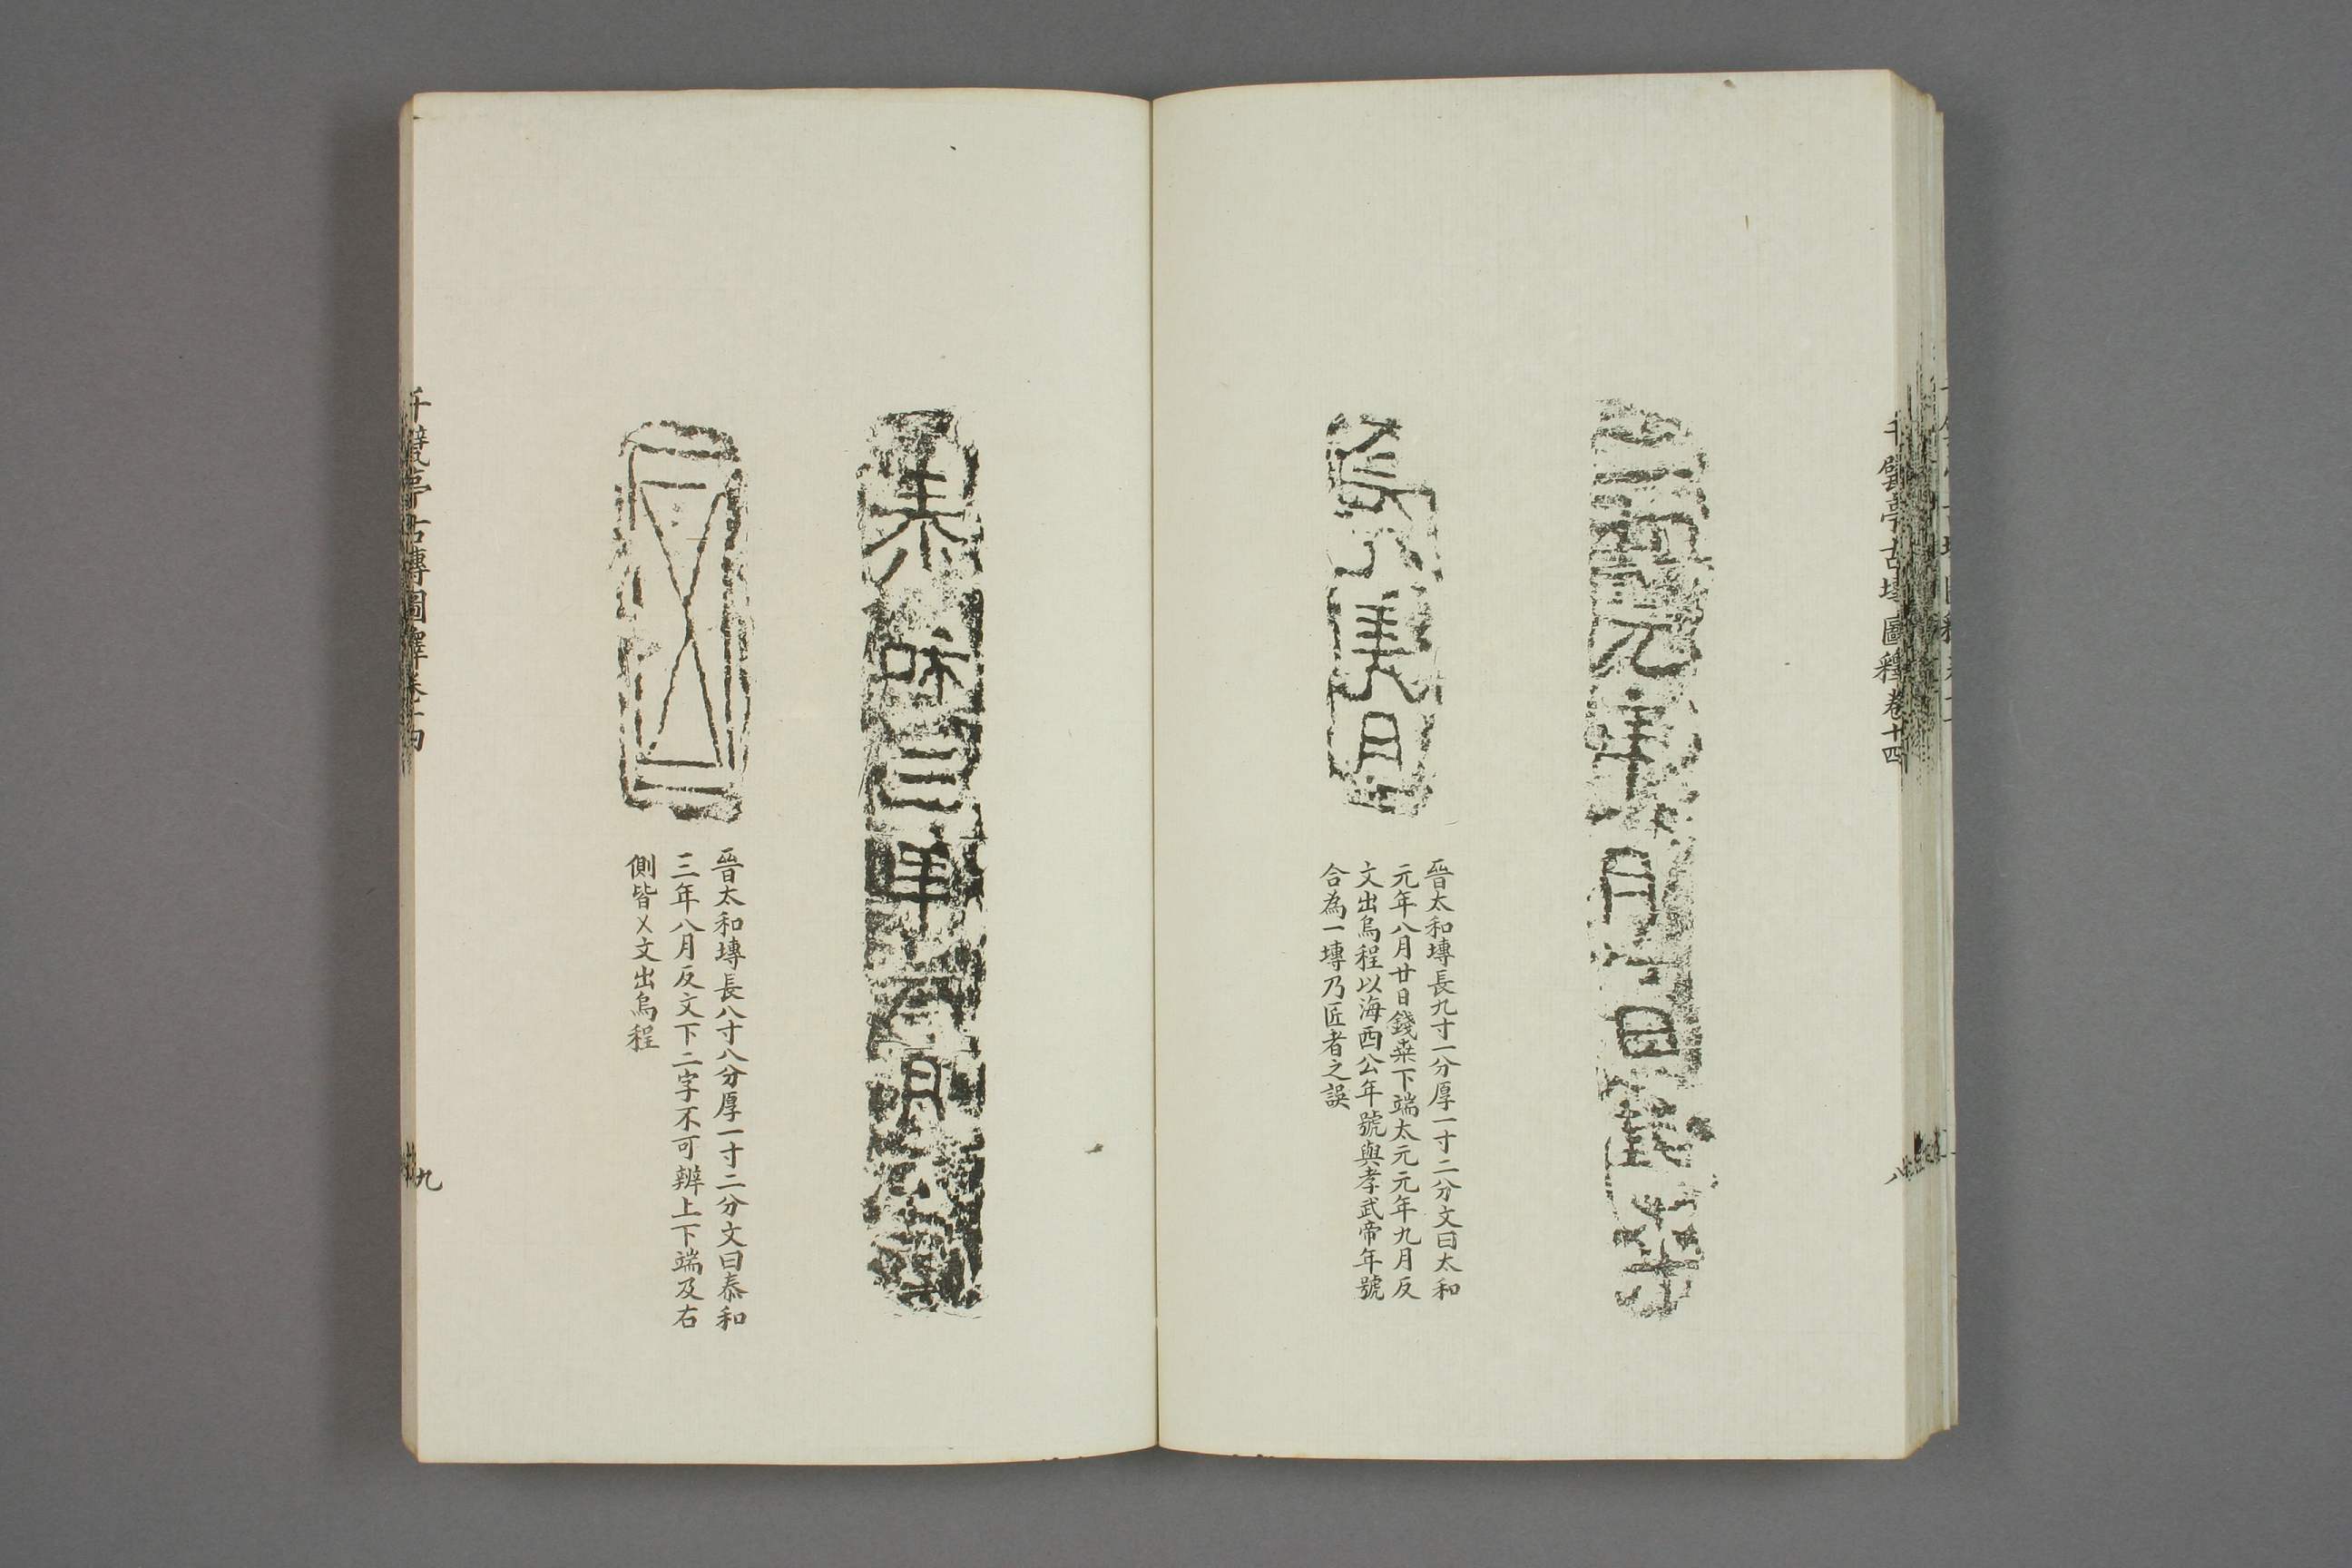 千甓亭古塼圖釋卷十四
八
晉太和塼長九寸一分厚一寸二分文曰太和
元年八月廿日錢桒下端太元元年九月反
文出烏程以海西公年號與孝武帝年號
合為一塼乃匠者之誤
泰和三年八月
晉太和塼長八寸八分厚一寸二分文曰泰和
三年八月反文下二字不可辨上下端及右
側皆乂文出烏程
千甓亭古塼圖釋卷十四
九